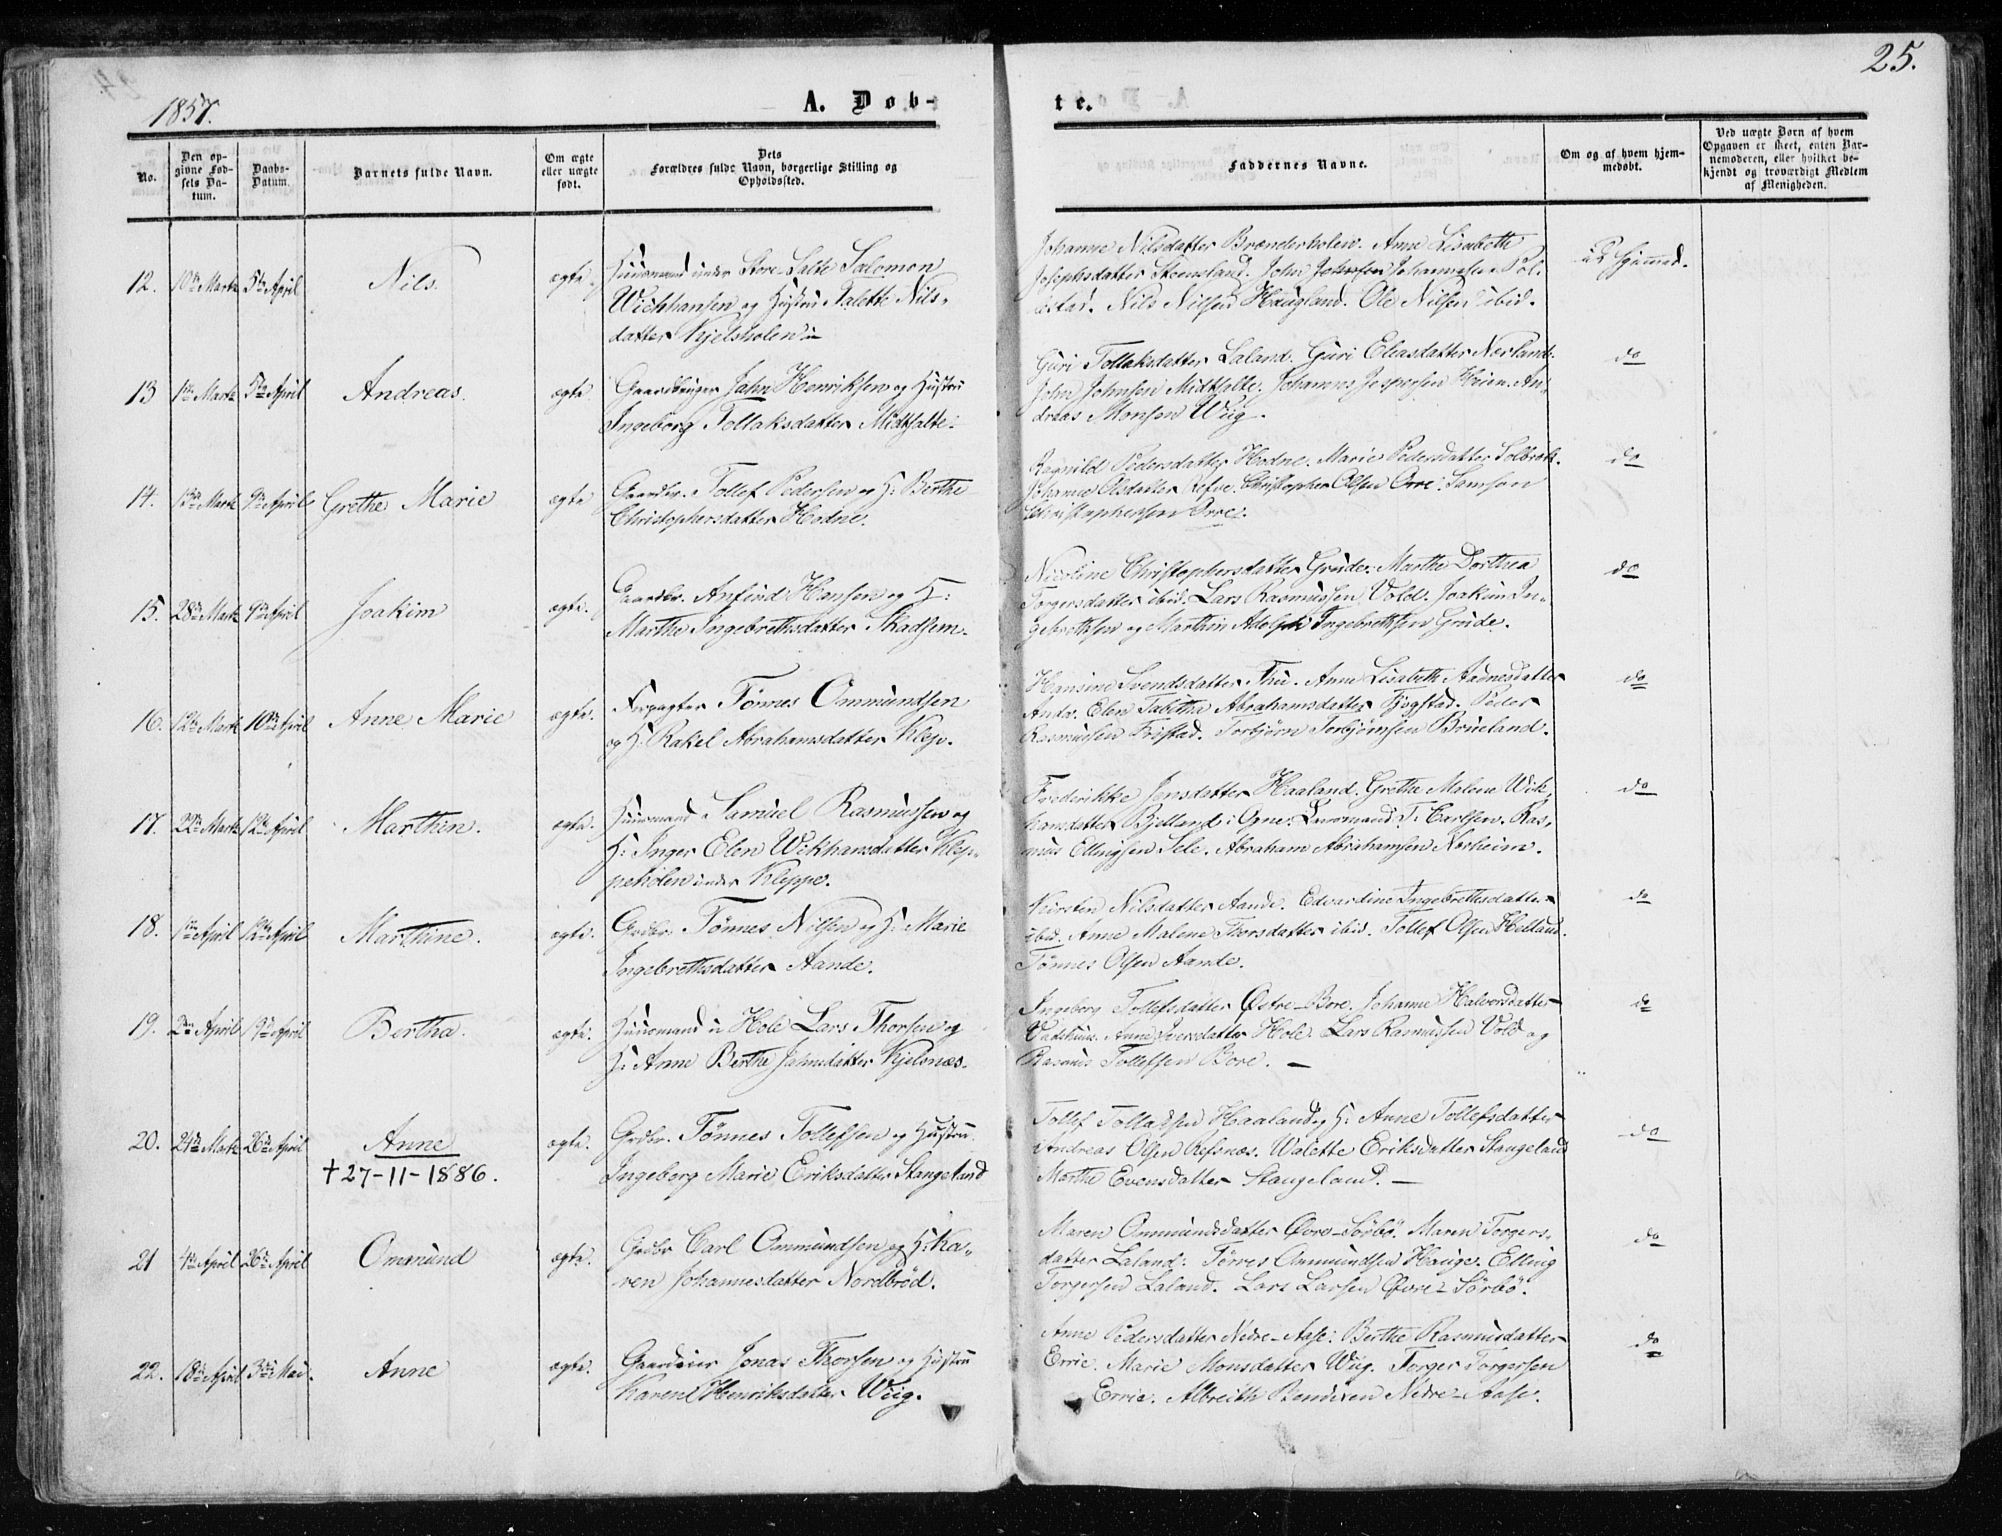 25.
1857.
A. Døb-
te.
No.
Den op-
givne Fød-
sels Da-
tum.
Daabs-
Datum.
Barnets fulde Navn.
Om ægte
eller uægte
født.
Dets
Forældres fulde Navn, borgerlige Stilling og
Opholdssted.
Faddernes Navne.
Om og af hvem hjem-
medøbt.
Ved uægte Børn af hvem
Opgaven er skeet, enten Bar-
nemoderen, eller hvilket be-
kjendt og troværdigt Medlem
af Menigheden.
12. 10de Marts 5te April Nils. ægte.
Huusmand under Store-Salte Salomon
Wichhansen og Hustru Valette Nils-
datter Kjelsholen
Johanne Nilsdatter Brænderholen. Anne Lisabeth
Josephsdatter Stensland. John Johnsen
Nils Nilsen Haugland. Ole Nilsen ibid.
13 1ste Marts 5te April Andreas. ægte
Gaardbruger Jahn Henriksen og Hustru
Ingeborg Tollaksdatter Midtsalte.
Guri Tollaksdatter Laland. Guri Eliasdatter Nerland.
John Johnsen Midtsalte. Johannes Jespersen Hoien. An-
dreas Monsen Wiig.
do
14. 13de Marts 9de April Grethe Marie ægte
Gaardbr. Tollef Pedersen og H: Berthe
Christophersdatter Hodne.
Ragnild Pedersdatter Hodne. Marie Pedersdatter
Johanne Olsdatter Refve. Christopher Olsen Orre. Samson
Christophersen Orre.
do
15. 28de Marts 9de April Joakim ægte.
Gaardbr. Anfind Hansen og H:
Marthe Ingebrethsdatter Skadsem.
Christophersdatter Grude. Marthe Dorthea
Torgersdatter ibid. Lars Rasmussen Vold. Joakim In-
gebrethsen og Marthin Adolph Ingebrethsen Grude.
do
16. 12te Marts 10de April Anne Marie ægte.
Forpagter Tønnes Ommundsen
og H: Rakel Abrahamsdatter Klep.
Hansine Svendsdatter Thu. Anne Lisabeth Aadnesdatter
Anda. Elen Tabitha Abrahamsdatter Fjogstad. Peder
Rasmussen Fristad. Torbjørn Torbjørnsen Brueland.
do
17. 22de Marts 12te April Marthin. ægte.
Huusmand Samuel Rasmussen og
H: Inger Elen Wikhansdatter Klep-
peholen under Kleppe.
Frederikke Jensdatter Haaland. Grethe Malene Wik-
hansdatter Bjelland i Ogne. Lensmand T. Carlsen. Ras-
mus Ellingsen Sele. Abraham Abrahamsen Norheim.
do
18. 1ste April 12te April Marthine. ægte.
Grdbr. Tønnes Nilsen og H: Marie
Ingebrethsdatter Aande.
Kirsten Nilsdatter Aande. Edvardine Ingebrethsdatter
ibid. Anne Malene Thorsdatter ibid. Tollef Olsen Helland.
Tønnes Olsen Aande.
do
19. 2den April 19de April Bertha. ægte.
Huusmand u Hole Lars Thorsen og
H: Anne Berthe Jahnsdatter Kjelsnæs.
Ingeborg Tollefsdatter Østre-Bore. Johanne Halvorsdatter
Anne Iversdatter Hole. Lars Rasmussen Vold og
Rasmus Tollefsen Bore. —
do
20. 24de Marts 26de April Anne ægte.
† 27-11-1886.
Grdbr. Tønnes Tollefsen og Hustru
Ingeborg Marie Eriksdatter Stangeland
Tollef Tollaksen Haaland og H: Anne Tollefsdatter
Andreas Olsen Refsnæs. Valette Eriksdatter Stangeland
Marthe Evensdatter Stangeland. —
do
21 4de April 26de April Ommund ægte.
Grdbr Carl Ommundsen og H: Ka-
ren Johannesdatter Nordbrød.
Maren Ommundsdatter Øvre-Sörbö. Maren Torgers-
datter Laland. Tørres Ommundsen Hauge. Elling
Torgersen Laland. Lars Larsen Øvre-Sörbö.
do
22. 18de April 3die Mai. Anne ægte.
Gaardeier Jonas Thorsen og Hustru
Karen Henriksdatter Wiig.
Anne Pedersdatter Nedre-Aase. Berthe Rasmusdatter
Errie. Marie Monsdatter Wiig. Torger Torgersen
Errie. Albreith Bendixen Nedre-Aase.
do